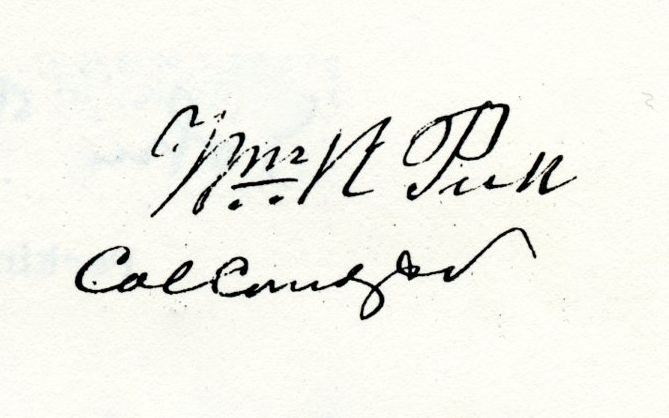 Wm. R Peck
Col Comdg